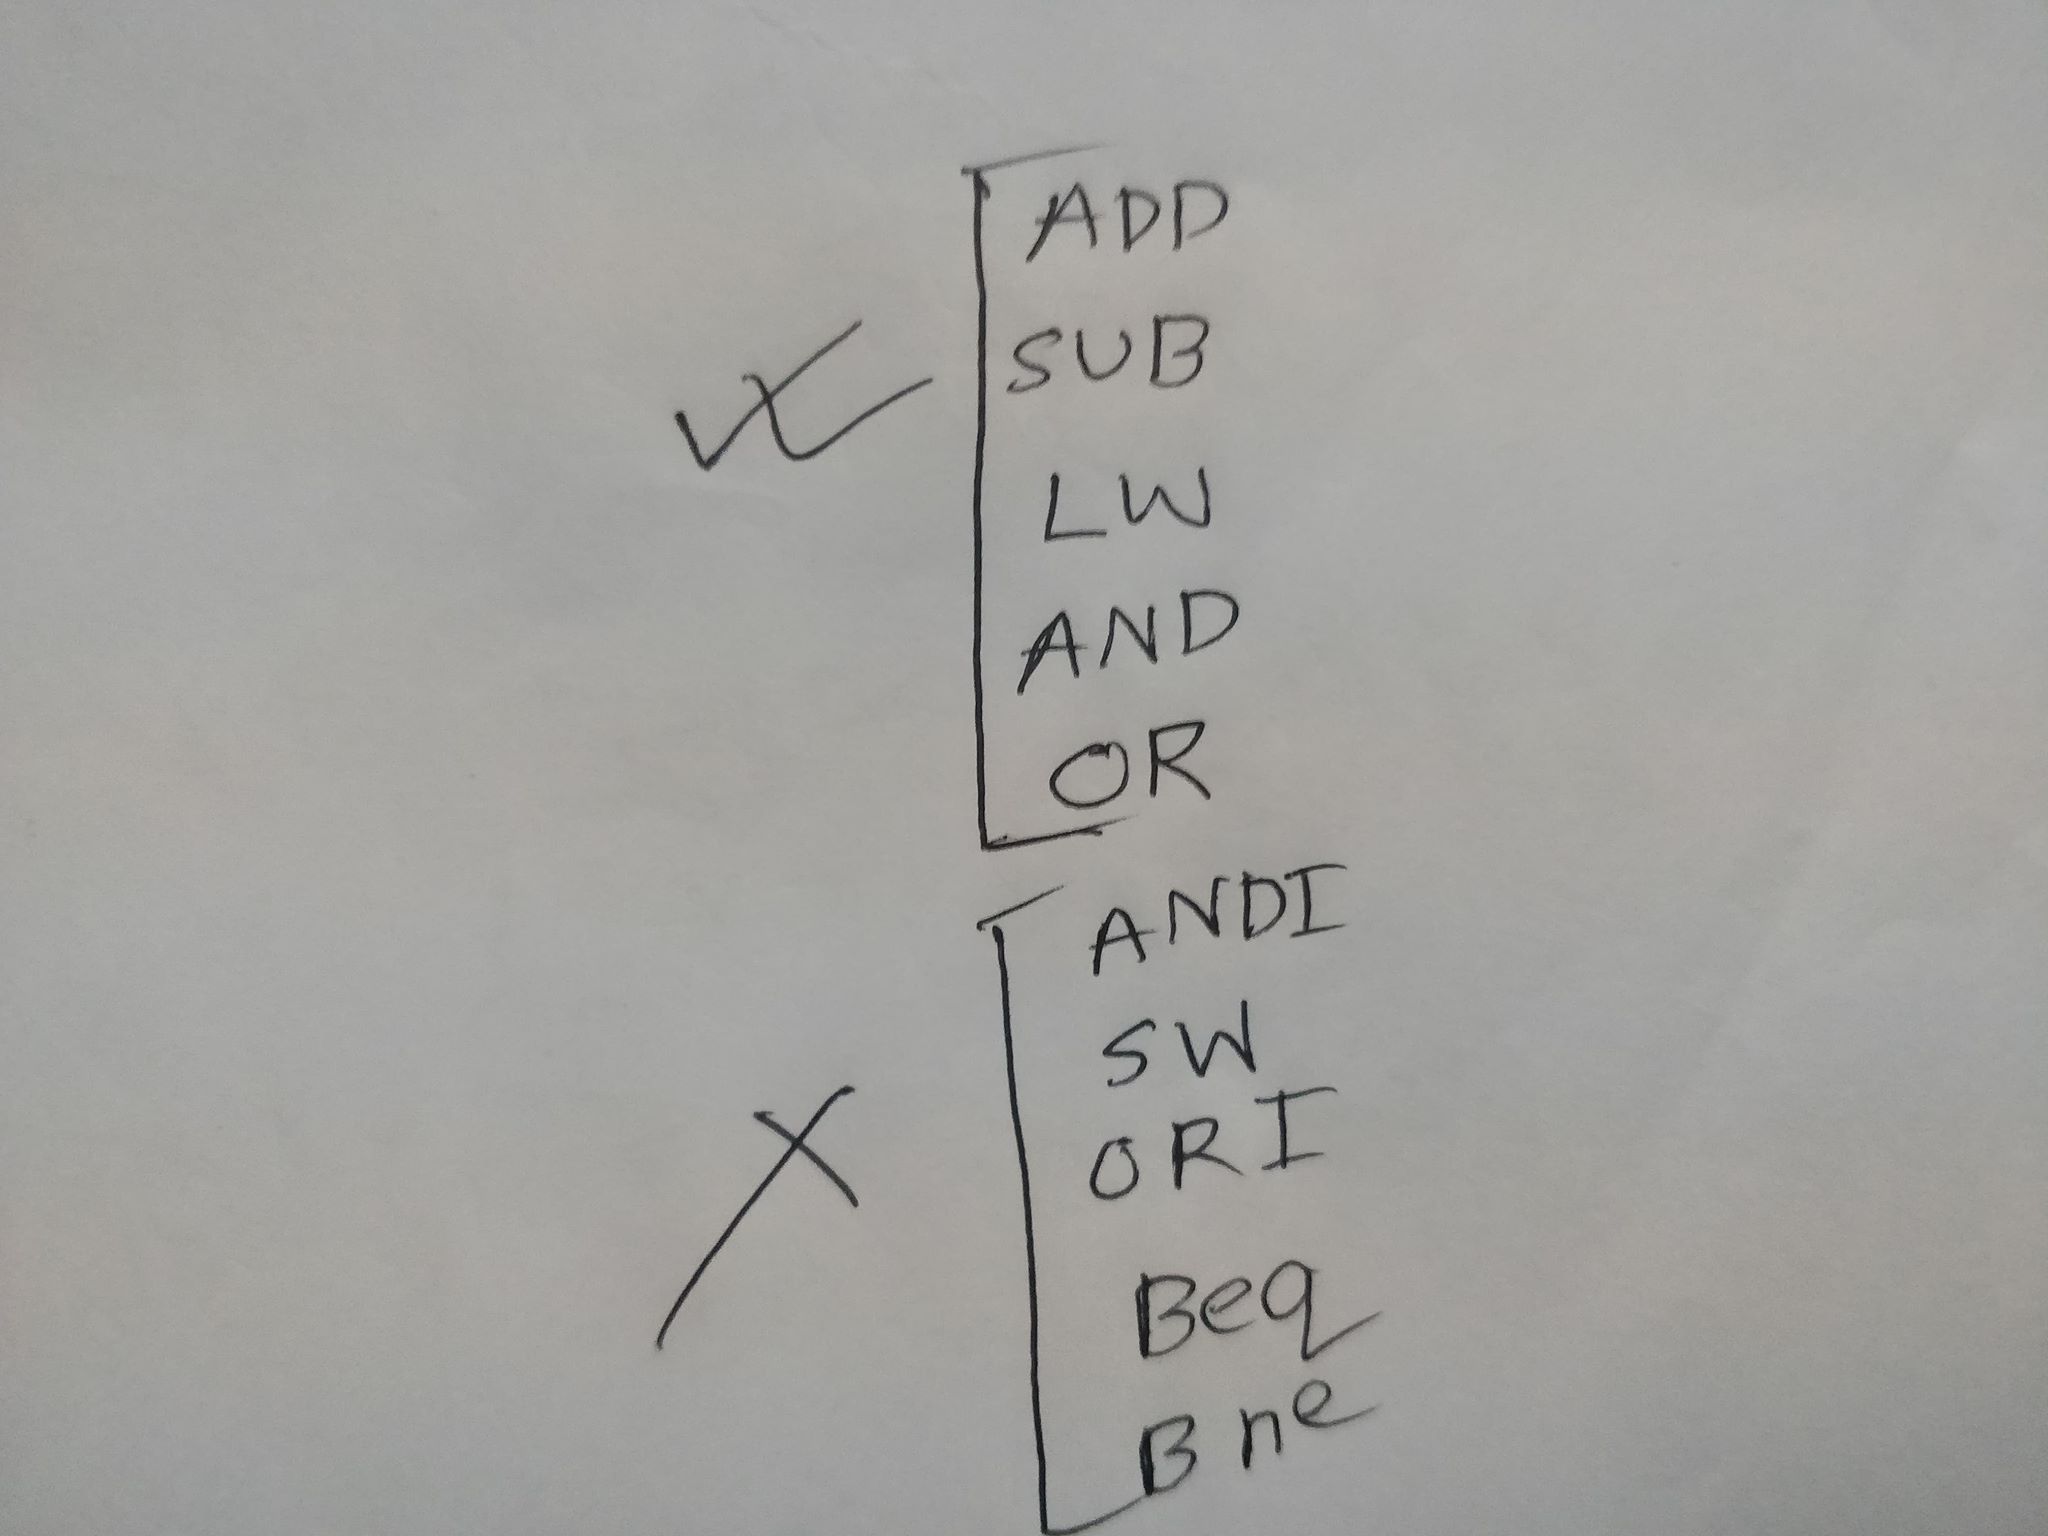 ADD
SUB
LW
AND
OR
ANDI
SW
ORI
Beq
Bne